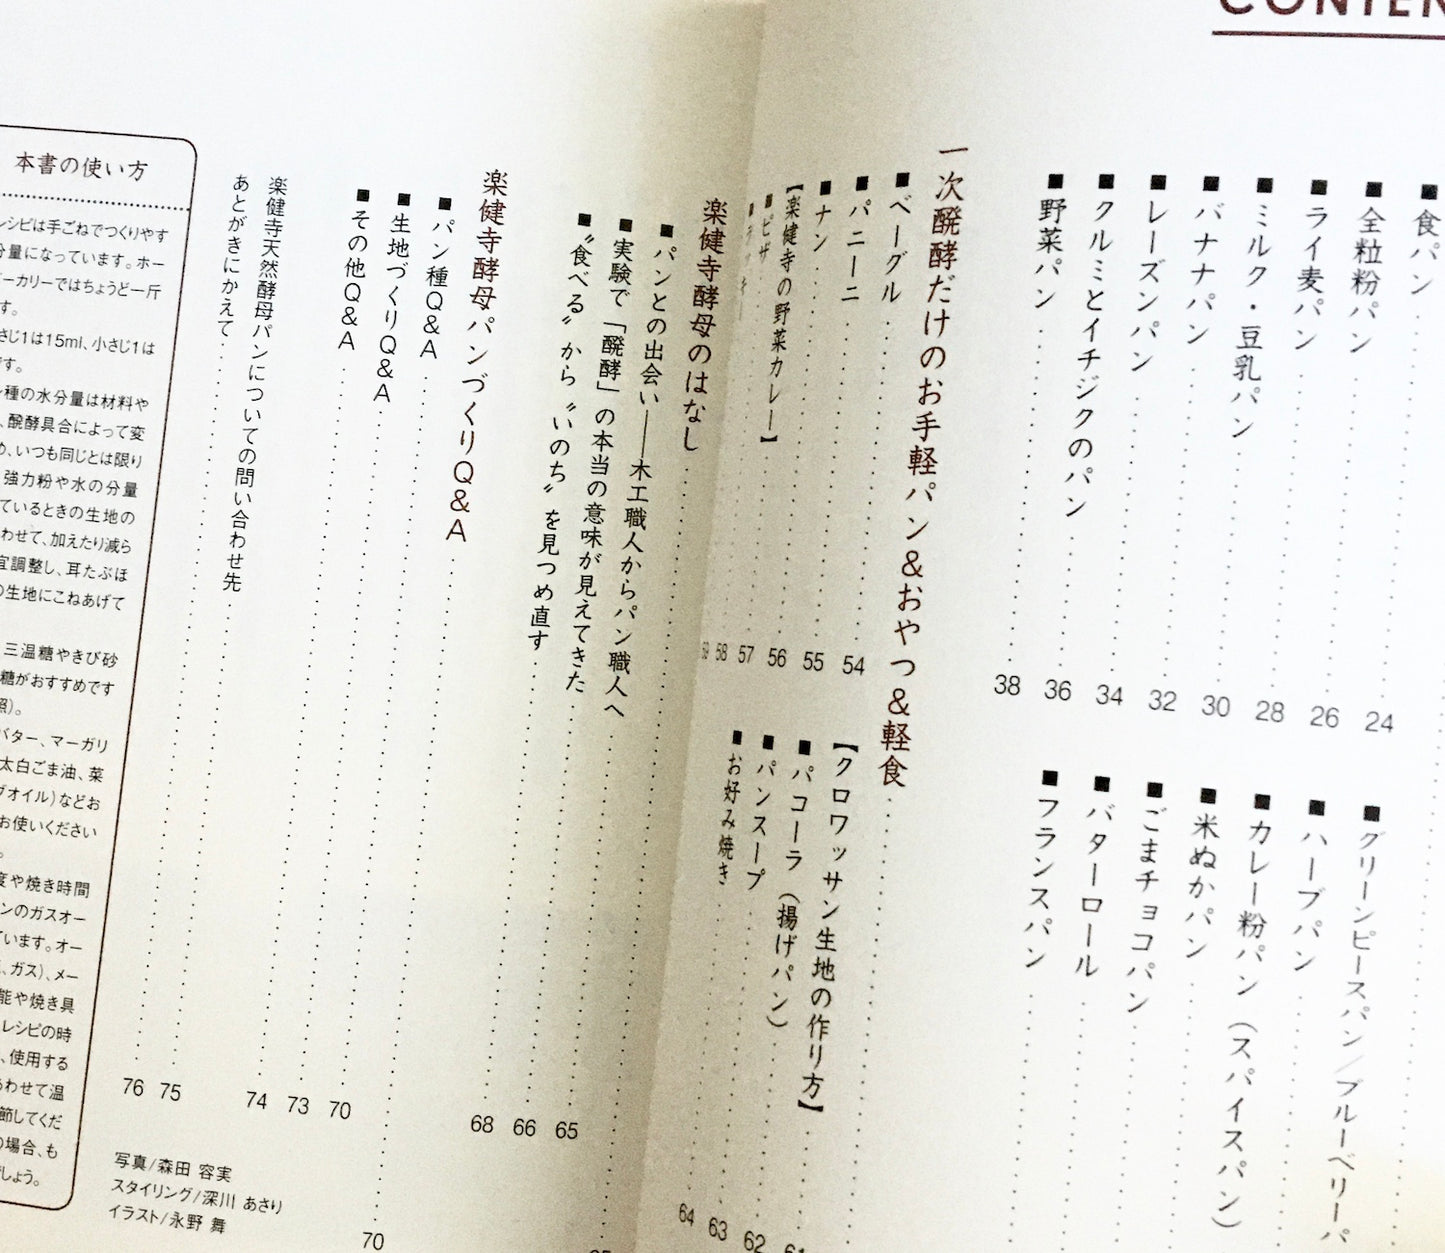 CONTEN
■食パン
■全粒粉パン 24
■ライ麦パン 26
■ミルク・豆乳パン 28
■バナナパン 30
■レーズンパン 32
■クルミとイチジクのパン 34
■野菜パン 36
38
■グリーンピースパン／ブルーベリーパ
■ハーブパン
■カレー粉パン（スパイスパン）
■米ぬかパン
■ごまチョコパン
■バターロール
■フランスパン
一次醗酵だけのお手軽パン&おやつ&軽食
■ベーグル 54
■パニーニ 55
■ナン 56
【楽健寺の野菜カレー】 57
■ピザ 58
59
【クロワッサン生地の作り方】 61
■パコーラ（揚げパン） 62
■パンスープ 63
■お好み焼き 64
楽健寺酵母のはなし
■パンとの出会い――木工職人からパン職人へ 65
■実験で「醗酵」の本当の意味が見えてきた 66
■〝食べる〟から〝いのち〟を見つめ直す 68
楽健寺酵母パンづくりQ&A 70
■パン種Q&A 70
■生地づくりQ&A 73
■その他Q&A 74
楽健寺天然酵母パンについての問い合わせ先 75
あとがきにかえて 76
写真/森田 容実
スタイリング/深川 あさり
イラスト/永野 舞
本書の使い方
レシピは手ごねでつくりやす
分量になっています。ホー
ーカリーではちょうど一斤
す。
さじ1は15ml、小さじ1は
です。
種の水分量は材料や
、醗酵具合によって変
め、いつも同じとは限り
強力粉や水の分量
ているときの生地の
わせて、加えたり減ら
宜調整し、耳たぶほ
の生地にこねあげて
三温糖やきび砂
糖がおすすめです
照)。
バター、マーガリ
太白ごま油、菜
グオイル)などお
お使いください
。
度や焼き時間
ンのガスオー
ています。オー
、ガス)、メー
能や焼き具
レシピの時
、使用する
あわせて温
節してくだ
の場合、も
でしょう。